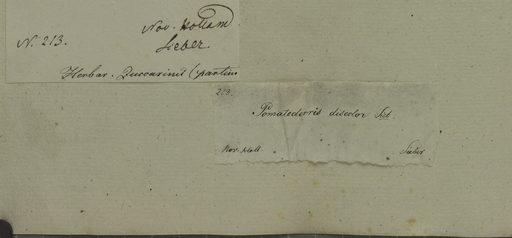 Nov. Holland
N. 213.
Sieber.
Herbar. Zuccarinii (partim
213.
Pomaderris discolor
Nov. Holl.
Sieber